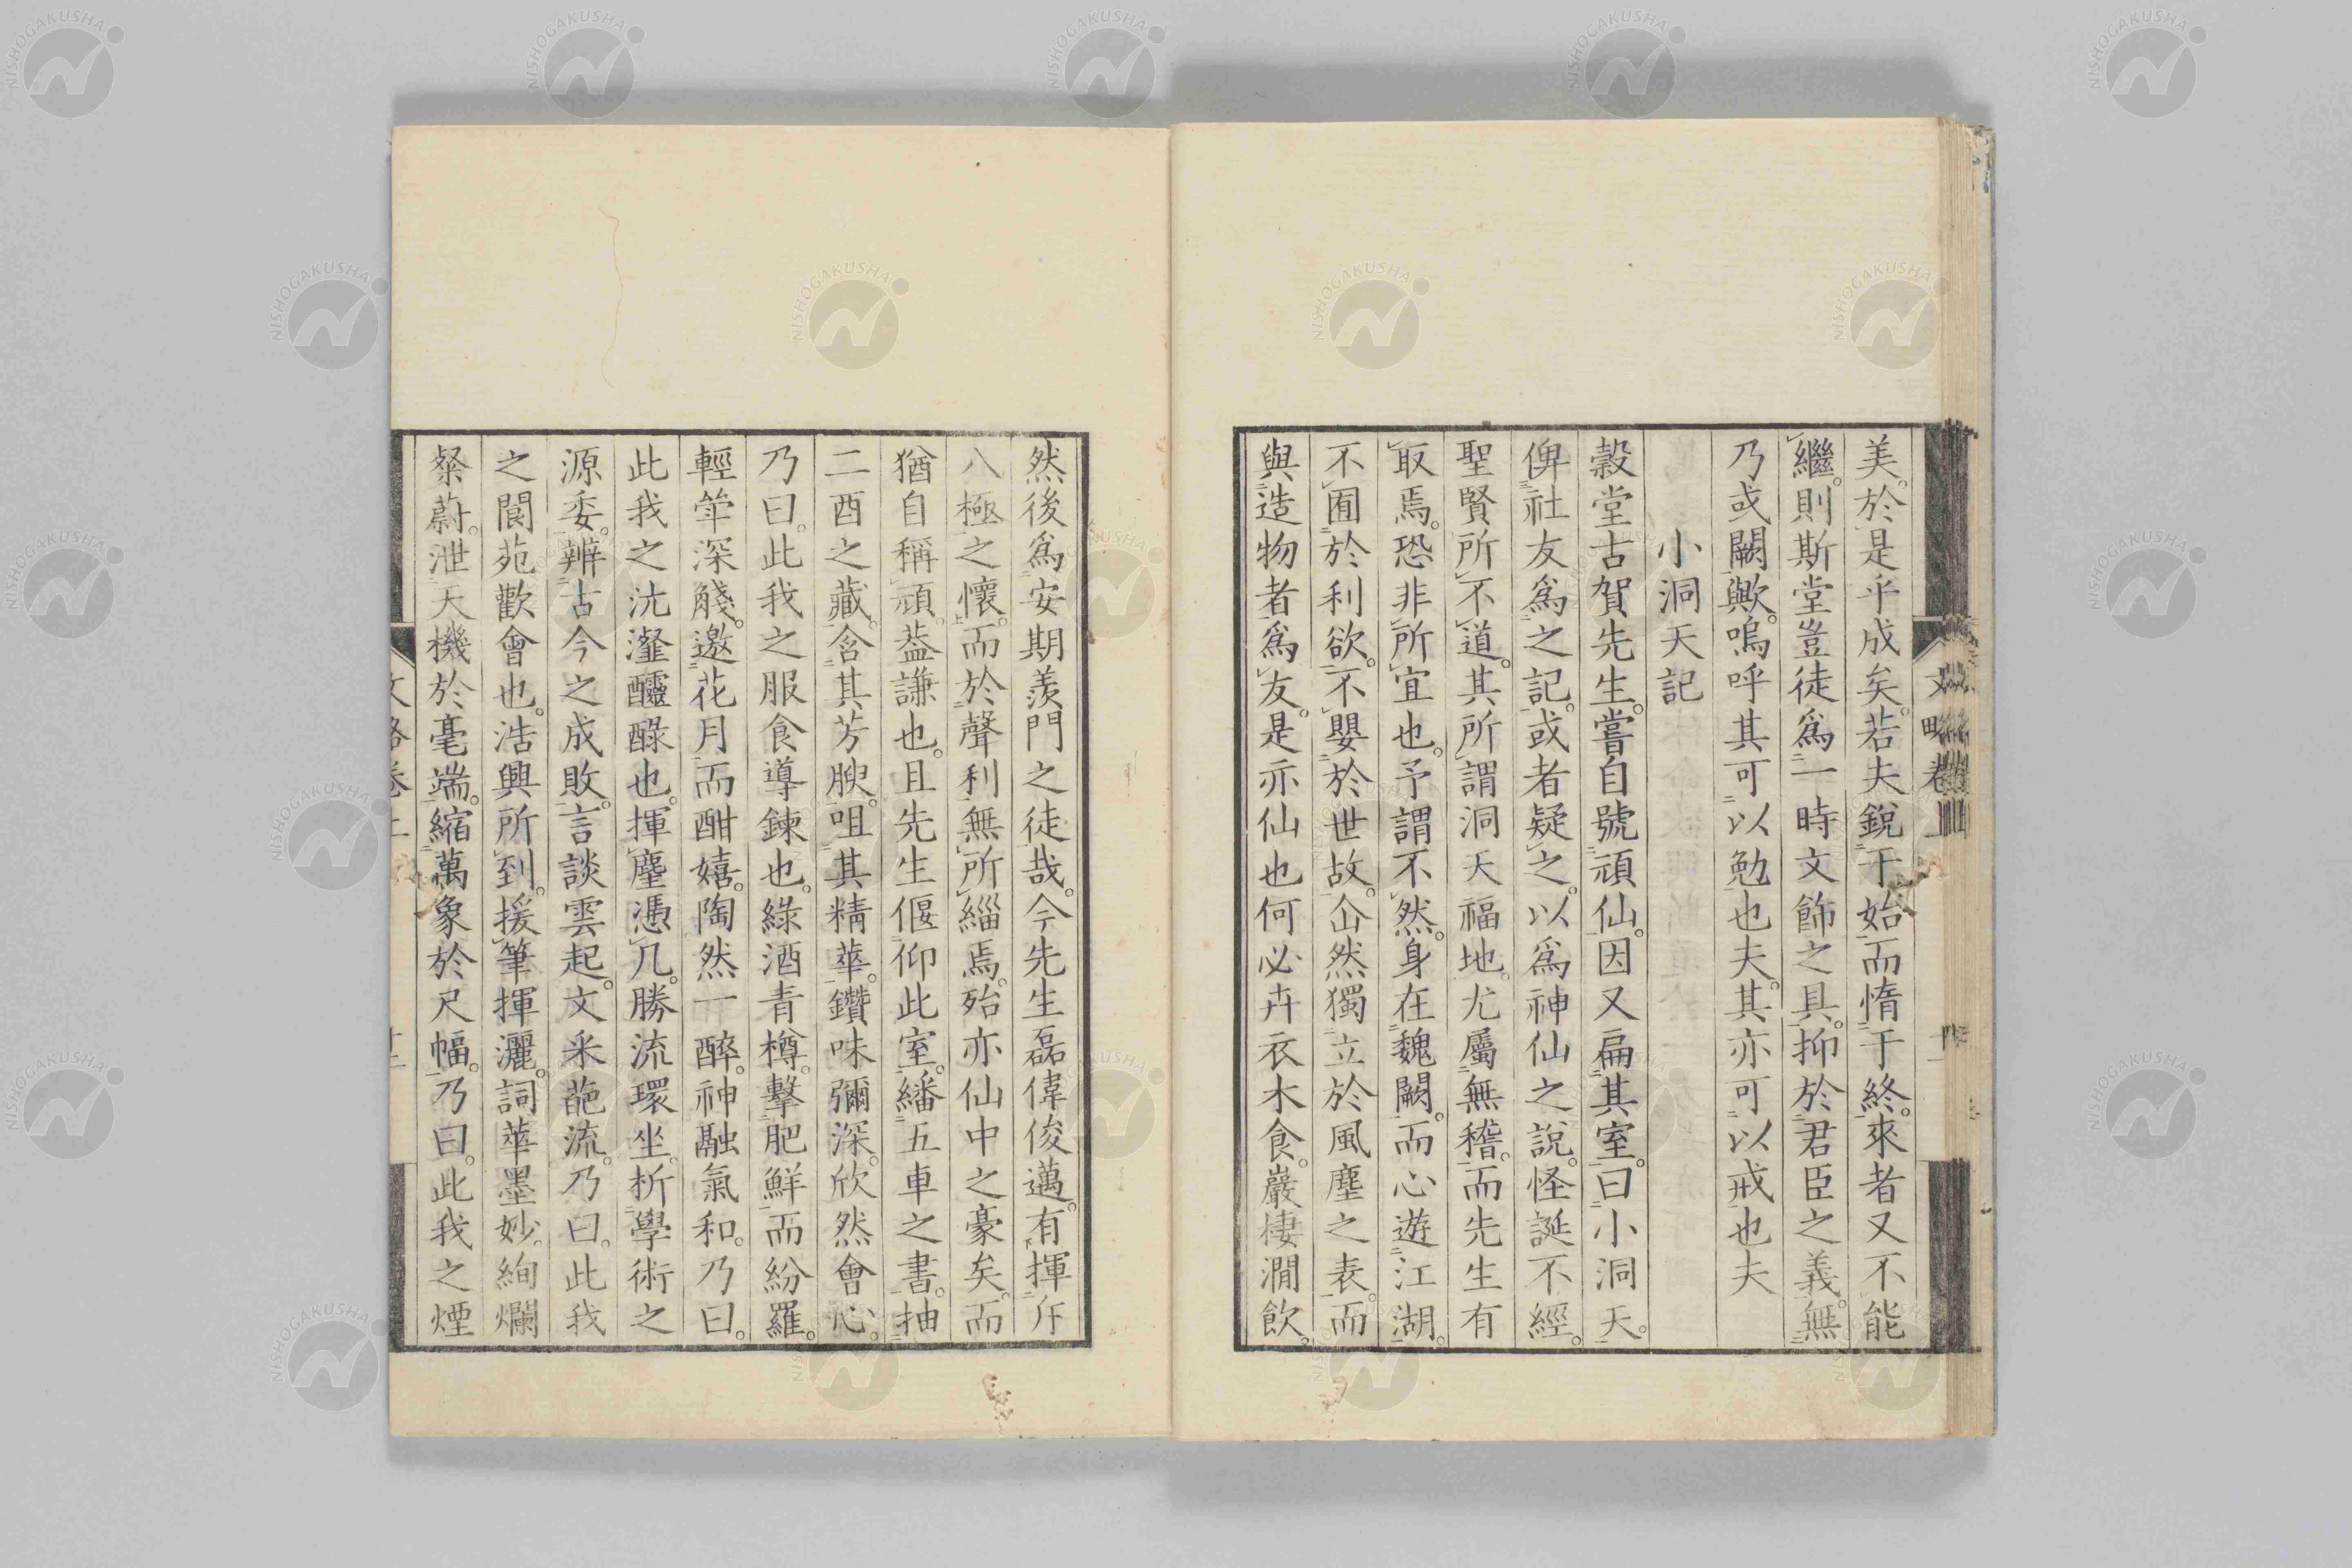 美。於是乎成矣。若夫銳于始而惰于終。來者又不能
繼。則斯堂豈徒爲一時文飾之具。抑於君臣之義。無
乃或闕歟。嗚呼其可以勉也夫。其亦可以戒也夫
小洞天記
穀堂古賀先生。嘗自號頑仙。因又扁其室。曰小洞天。
俾社友爲之記。或者疑之。以爲神仙之說。怪誕不經。
聖賢所不道。其所謂洞天福地。尤屬無稽。而先生有
取焉。恐非所宜也。予謂不然。身在魏闕。而心遊江湖。
不囿於利欲。不嬰於世故。仚然獨立於風塵之表。而
與造物者爲友。是亦仙也何必卉衣木食。巖棲澗飲。
然後爲安期羨門之徒哉。今先生磊偉俊邁。有揮斥
八極之懷。而於聲利無所緇焉。殆亦仙中之豪矣。而
猶自稱頑。葢謙也。且先生偃仰此室。繙五車之書。抽
二酉之藏。含其芳腴。咀其精華。鑽味彌深。欣然會心。
乃曰。此我之服食導鍊也。綠酒青樽。擊肥鮮而紛羅。
輕斝深觴。邀花月而酣嬉。陶然一醉。神融氣和。乃曰。
此我之沆瀣醽醁也。揮麈憑几。勝流環坐。析學術之
源委。辨古今之成敗。言談雲起。文米葩流。乃曰。此我
之閬苑歡會也。浩興所到。援筆揮灑。詞華墨妙。絢爛
粲蔚。泄天機於毫端。縮萬象於尺幅。乃曰。此我之煙
文略卷上
十二
NISHOGAKUSHA